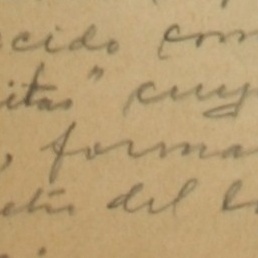 cido com
itas" cuy
, forma
del